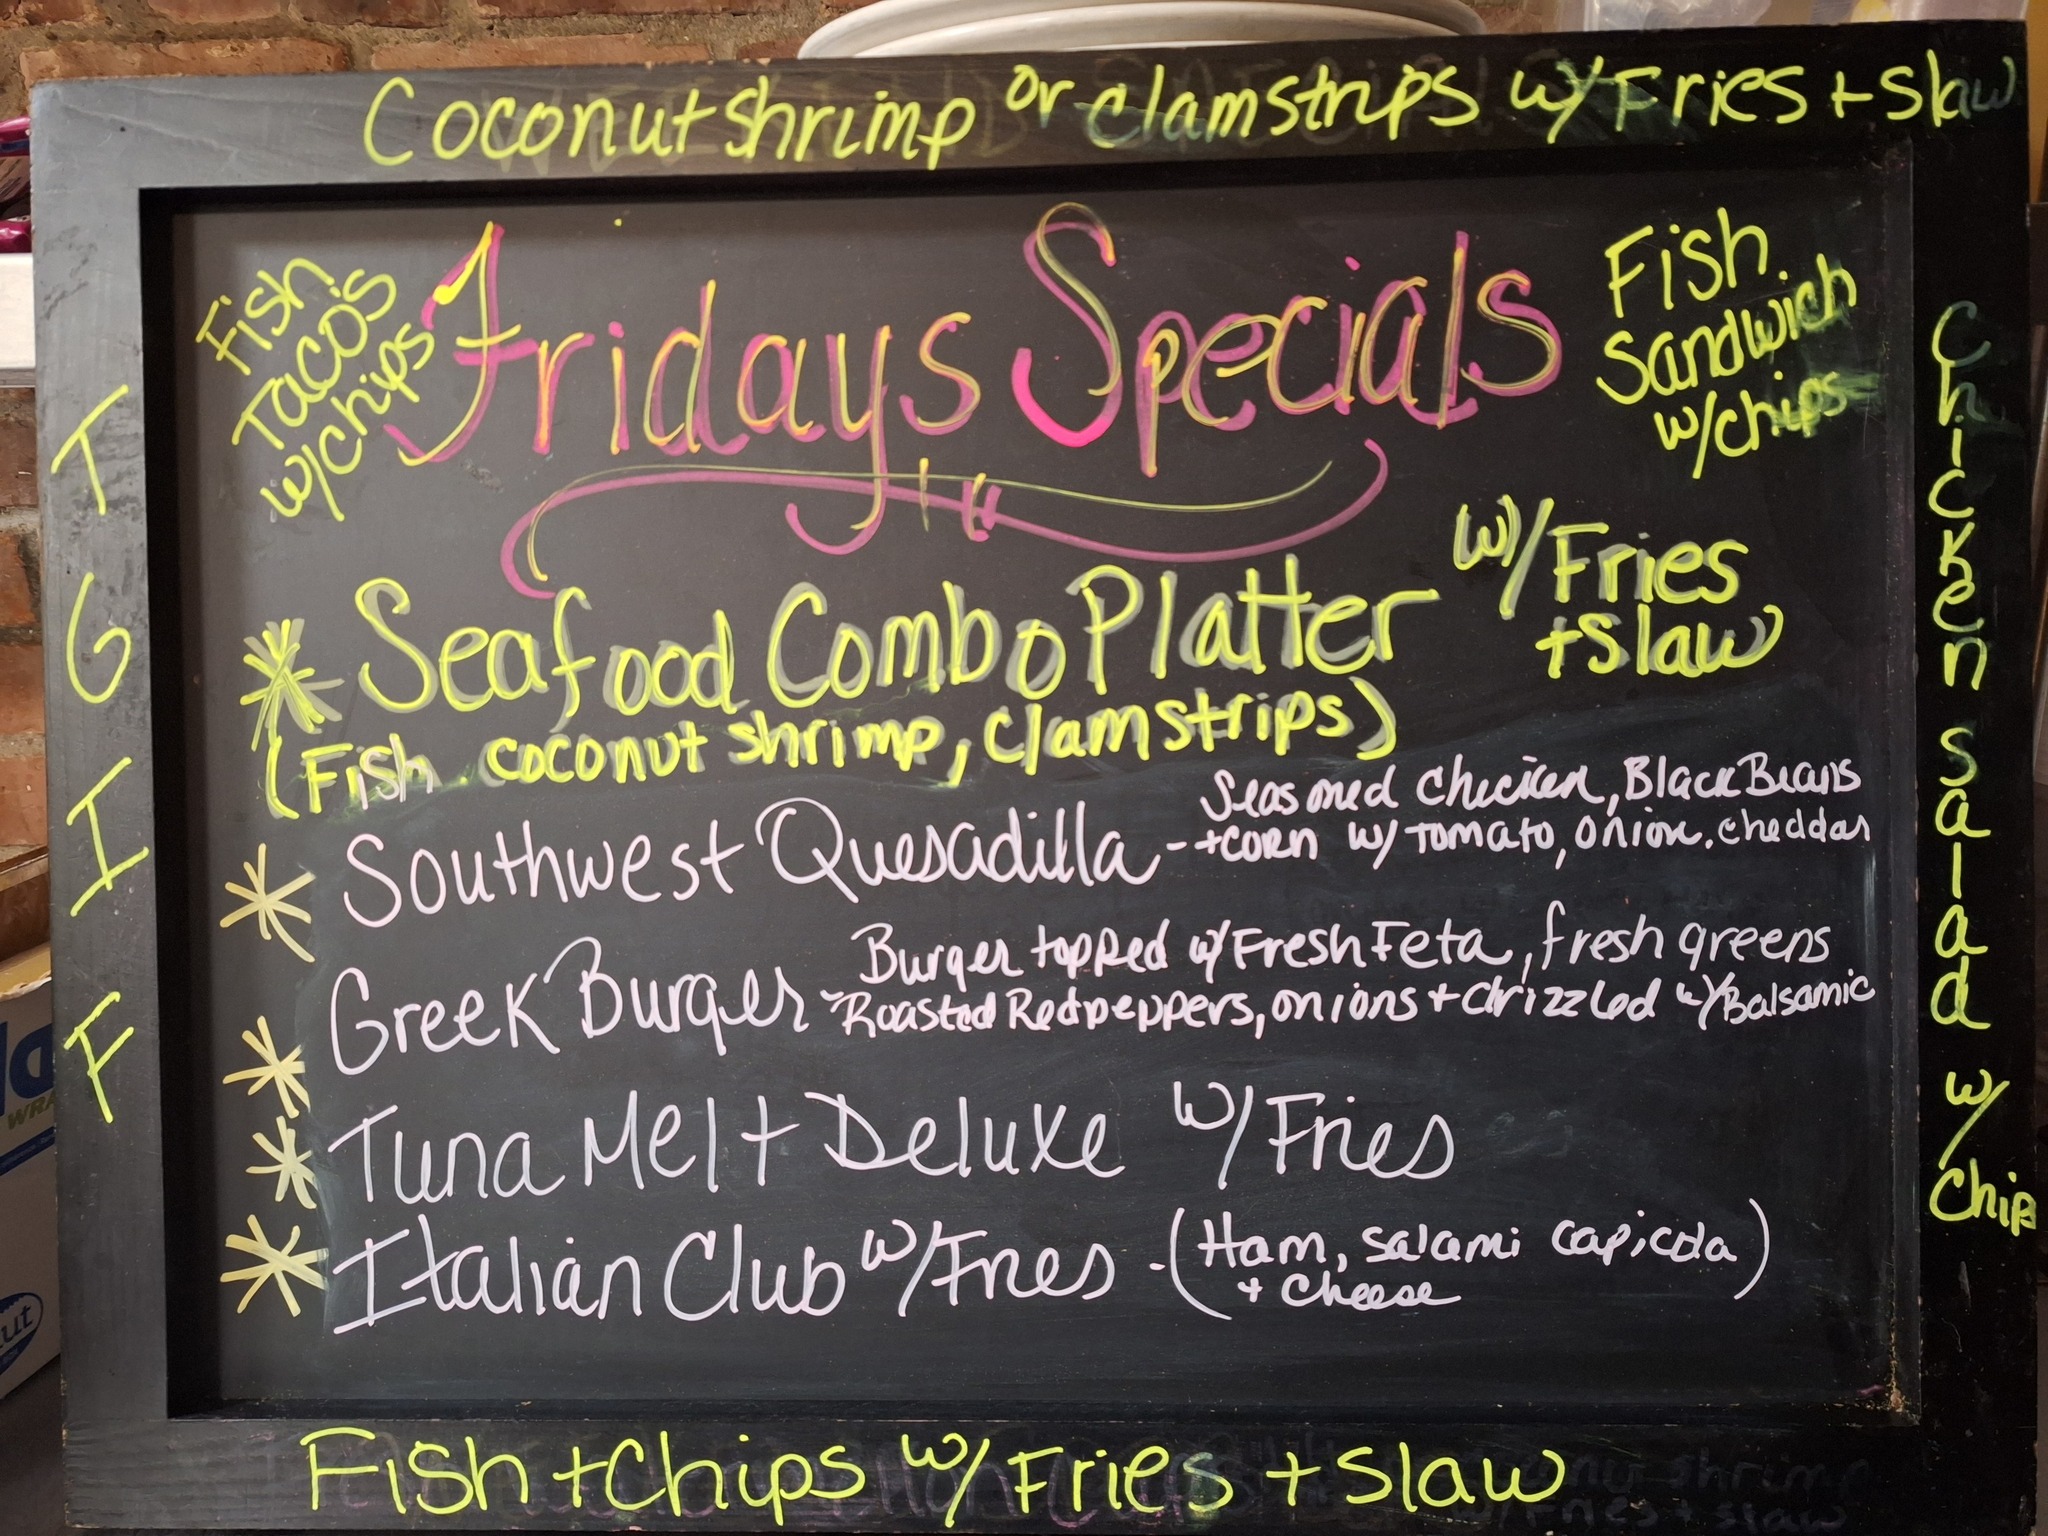 Coconut shrimp or clam strips w/ Fries + slaw
Fish
Tacos
w/chips
Fridays Specials
Fish
Sandwich
w/chips
TGIF
Seafood Combo Platter w/Fries
+ Slaw
(Fish coconut shrimp, clam strips)
Southwest Quesadilla -- Seasoned chicken, Black Beans
+ corn w/ tomato, onion, cheddar
Greek Burger - Burger topped w/ Fresh Feta, fresh greens
Roasted Red peppers, onions + drizzled w/ Balsamic
Tuna Melt Deluxe w/ Fries
Italian Club w/ Fries - (Ham, salami capicola
+ cheese)
Chicken salad w/ chips
Fish + Chips w/ Fries + slaw